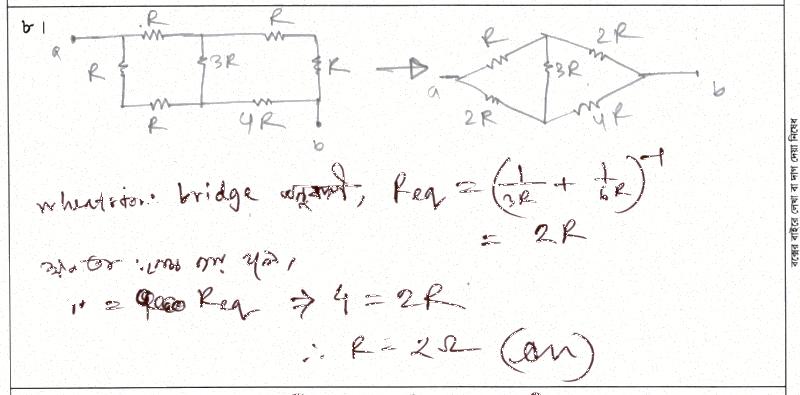 ৮।
R R
a R 3R R
R 4R
b
R 2R
a 3R b
2R 4R
bridge অনুযায়ী, Req = (1/3R + 1/6R)⁻¹
= 2R
Req ⇒ 4 = 2R
∴ R = 2Ω (an)
বক্সের বাইরে লেখা বা দাগ দেয়া নিষেধ